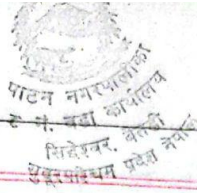 पाटन नगरपालिका
१ नं. वडा कार्यालय
सिद्धेश्वर, बैतडी
सुदूरपश्चिम प्रदेश नेपाल